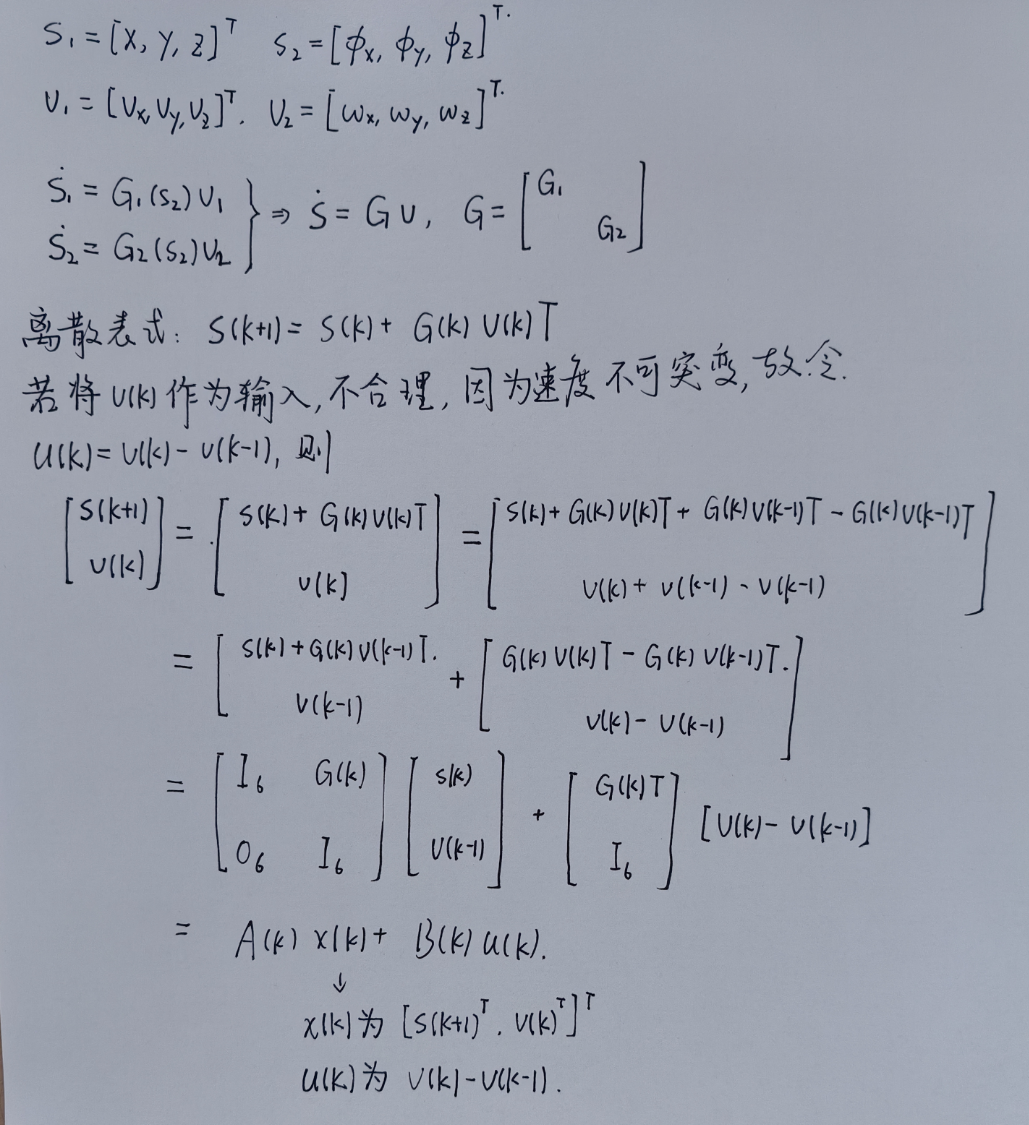 S₁ = [x, y, z]ᵀ  S₂ = [ϕx, ϕy, ϕz]ᵀ.
υ₁ = [υx, υy, υz]ᵀ. υ₂ = [ωx, ωy, ωz]ᵀ.
Ṡ₁ = G₁(S₂)υ₁
Ṡ₂ = G₂(S₂)υ₂
} ⇒ Ṡ = Gυ, G = [G₁ G₂]
离散表式: S(k+1) = S(k) + G(k)υ(k)T
若将υ(k)作为输入,不合理,因为速度不可突变,故令.
u(k) = υ(k) - υ(k-1), 则
[S(k+1); υ(k)] = [S(k) + G(k)υ(k)T; υ(k)] = [S(k) + G(k)υ(k)T + G(k)υ(k-1)T - G(k)υ(k-1)T; υ(k) + υ(k-1) - υ(k-1)]
= [S(k) + G(k)υ(k-1)T.; υ(k-1)] + [G(k)υ(k)T - G(k)υ(k-1)T.; υ(k) - υ(k-1)]
= [I₆ G(k); O₆ I₆] [S(k); υ(k-1)] + [G(k)T; I₆] [υ(k) - υ(k-1)]
= A(k)x(k) + B(k)u(k).
↓
x(k)为 [S(k+1)ᵀ. υ(k)ᵀ]ᵀ
u(k)为 υ(k) - υ(k-1).